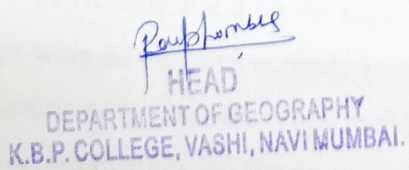 HEAD
DEPARTMENT OF GEOGRAPHY
K.B.P. COLLEGE, VASHI, NAVI MUMBAI.